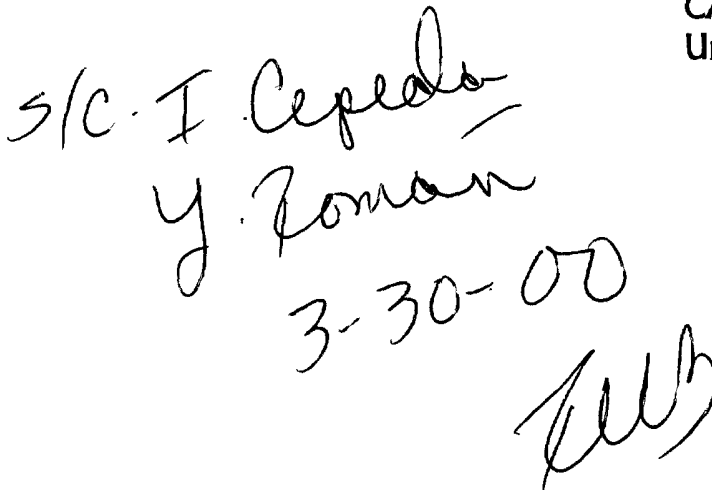 s/c. I. Cepeda
Y. Román
3-30-00